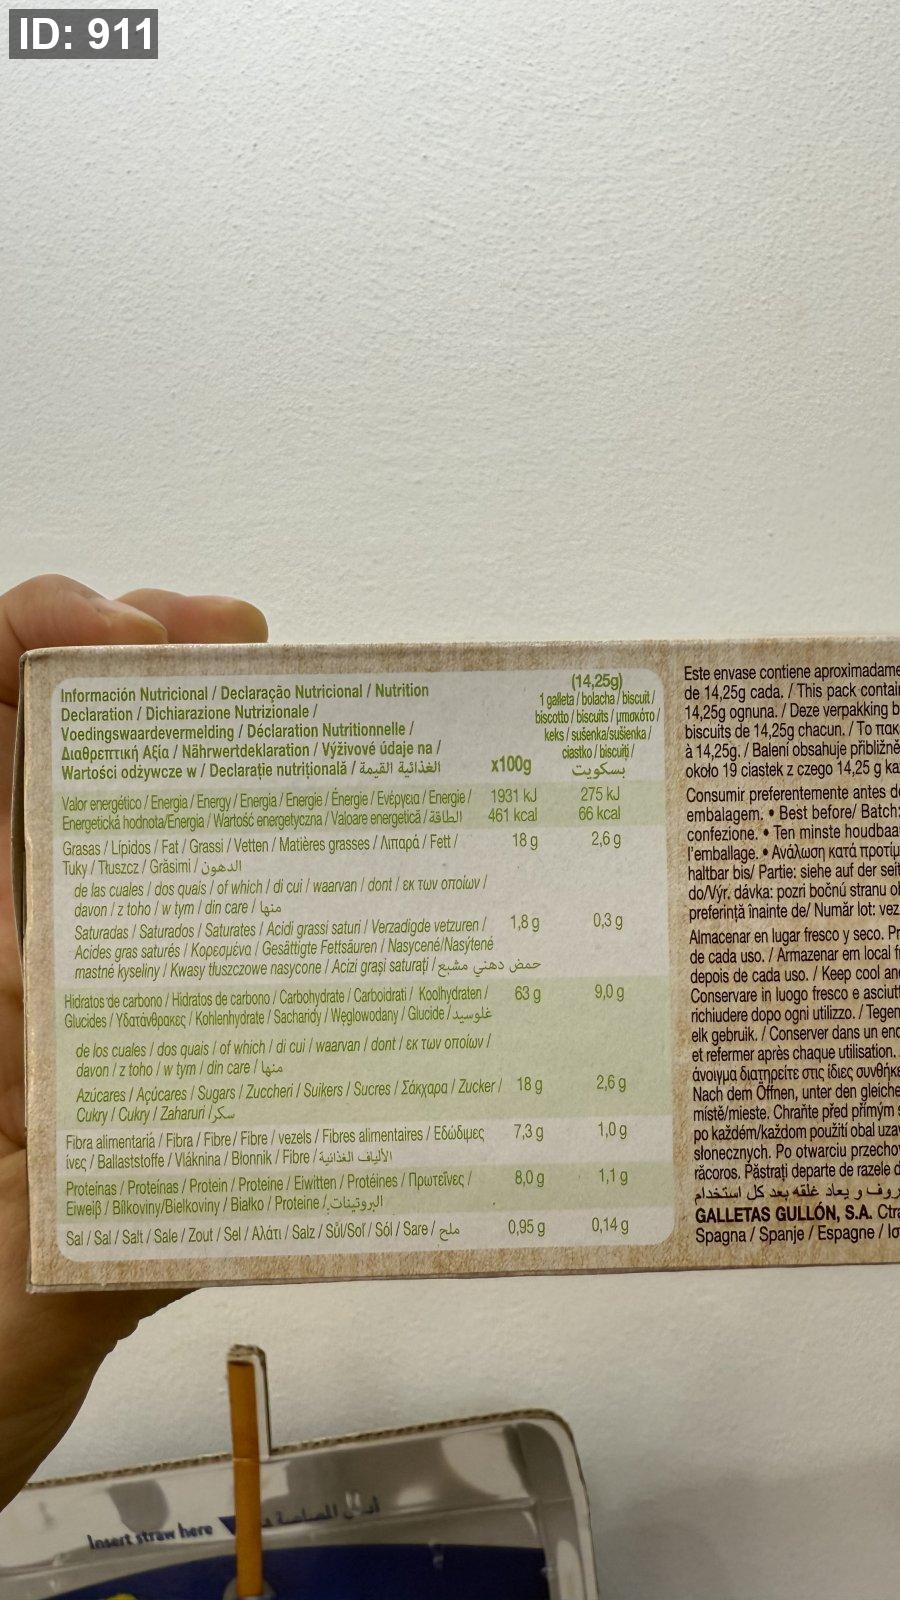 ID: 911
Información Nutricional / Declaração Nutricional / Nutrition
Declaration / Dichiarazione Nutrizionale /
Voedingswaardevermelding / Déclaration Nutritionnelle /
Διαθρεπτική Αξία / Nährwertdeklaration / Výživové údaje na /
Wartości odżywcze w / Declarație nutrițională / الغذائية القيمة
x100g
(14,25g)
1 galleta / bolacha / biscuit /
biscotto / biscuits / μπισκότο /
keks / sušenka/sušienka /
ciastko / biscuiți /
بسكويت
Valor energético / Energia / Energy / Energia / Energie / Énergie / Ενέργεια / Energie / 1931 kJ 275 kJ
Energetická hodnota/Energia / Wartość energetyczna / Valoare energetică / الطاقة 461 kcal 66 kcal
Grasas / Lípidos / Fat / Grassi / Vetten / Matières grasses / Λιπαρά / Fett / 18 g 2,6 g
Tuky / Tłuszcz / Grăsimi / الدهون
de las cuales / dos quais / of which / di cui / waarvan / dont / εκ των οποίων /
davon / z toho / w tym / din care / منها
Saturadas / Saturados / Saturates / Acidi grassi saturi / Verzadigde vetzuren / 1,8 g 0,3 g
Acides gras saturés / Κορεσμένα / Gesättigte Fettsäuren / Nasycené/Nasýtené
mastné kyseliny / Kwasy tłuszczowe nasycone / Acizi grași saturați / حمض دهني مشبع
Hidratos de carbono / Hidratos de carbono / Carbohydrate / Carboidrati / Koolhydraten / 63 g 9,0 g
Glucides / Υδατάνθρακες / Kohlenhydrate / Sacharidy / Węglowodany / Glucide / غلوسيد
de los cuales / dos quais / of which / di cui / waarvan / dont / εκ των οποίων /
davon / z toho / w tym / din care / منها
Azúcares / Açúcares / Sugars / Zuccheri / Suikers / Sucres / Σάκχαρα / Zucker / 18 g 2,6 g
Cukry / Cukry / Zaharuri / سكر
Fibra alimentaria / Fibra / Fibre / Fibre / vezels / Fibres alimentaires / Εδώδιμες 7,3 g 1,0 g
ίνες / Ballaststoffe / Vláknina / Błonnik / Fibre / الألياف الغذائية
Proteínas / Proteínas / Protein / Proteine / Eiwitten / Protéines / Πρωτεΐνες / 8,0 g 1,1 g
Eiweiß / Bílkoviny/Bielkoviny / Białko / Proteine / البروتينات
Sal / Sal / Salt / Sale / Zout / Sel / Αλάτι / Salz / Sůl/Soľ / Sól / Sare / ملح 0,95 g 0,14 g
Este envase contiene aproximadame
de 14,25g cada. / This pack contai
14,25g ognuna. / Deze verpakking b
biscuits de 14,25g chacun. / Το πακ
à 14,25g. / Balení obsahuje přibližně
około 19 ciastek z czego 14,25 g ka
Consumir preferentemente antes d
embalagem. • Best before/ Batch:
confezione. • Ten minste houdbaa
l'emballage. • Ανάλωση κατά προτίμ
haltbar bis/ Partie: siehe auf der seit
do/Výr. dávka: pozri bočnú stranu o
preferință înainte de/ Număr lot: vez
Almacenar en lugar fresco y seco. Pr
de cada uso. / Armazenar em local f
depois de cada uso. / Keep cool an
Conservare in luogo fresco e asciutt
richiudere dopo ogni utilizzo. / Tegen
elk gebruik. / Conserver dans un end
et refermer après chaque utilisation.
άνοιγμα διατηρείτε στις ίδιες συνθήκε
Nach dem Öffnen, unter den gleiche
místě/mieste. Chraňte před přímým s
po každém/každom použití obal uza
słonecznych. Po otwarciu przecho
răcoros. Păstrați departe de razele d
روف و يعاد غلقه بعد كل استخدام
GALLETAS GULLÓN, S.A. Ctra
Spagna / Spanje / Espagne / Ισ
Insert straw here